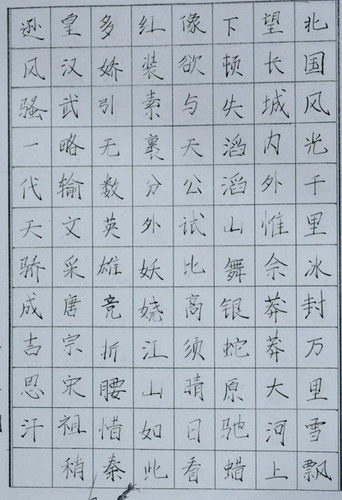 北国风光千里冰封万里雪飘
望长城内外惟余莽莽大河上
下顿失滔滔山舞银蛇原驰蜡
像欲与天公试比高须晴日看
红装素裹分外妖娆江山如此
多娇引无数英雄竞折腰惜秦
皇汉武略输文采唐宗宋祖稍
逊风骚一代天骄成吉思汗